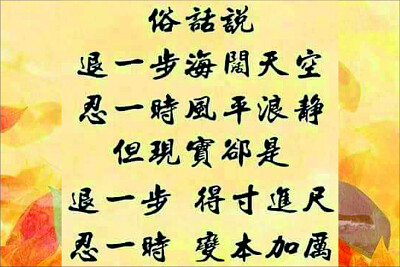 俗話說
退一步海闊天空
忍一時風平浪靜
但現實卻是
退一步 得寸進尺
忍一時 變本加厲